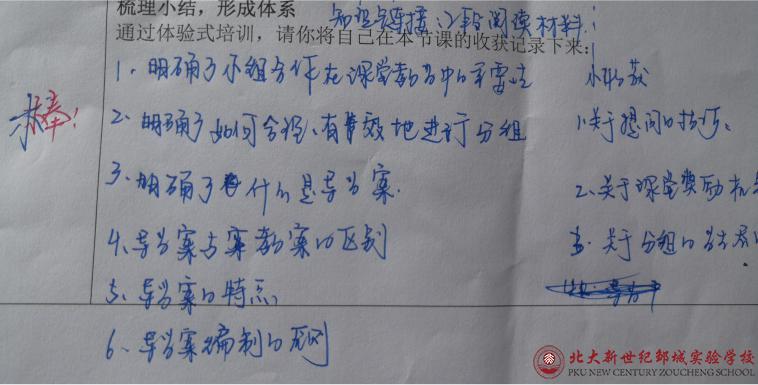 梳理小结，形成体系
知识链接：海阅读材料：
通过体验式培训，请你将自己在本节课的收获记录下来：
1、明确了小组合作在课堂教学中的重要性
2、明确了如何合理、有效地进行分组
3、明确了什么是导学案.
4、导学案与案教案的区别
5、导学案的特点
6、导学案编制的原则
棒！
小收获
1.关于提问的技巧。
2、关于课堂奖励机
3. 关于分组的
北大新世纪邹城实验学校
PKU NEW CENTURY ZOUCHENG SCHOOL